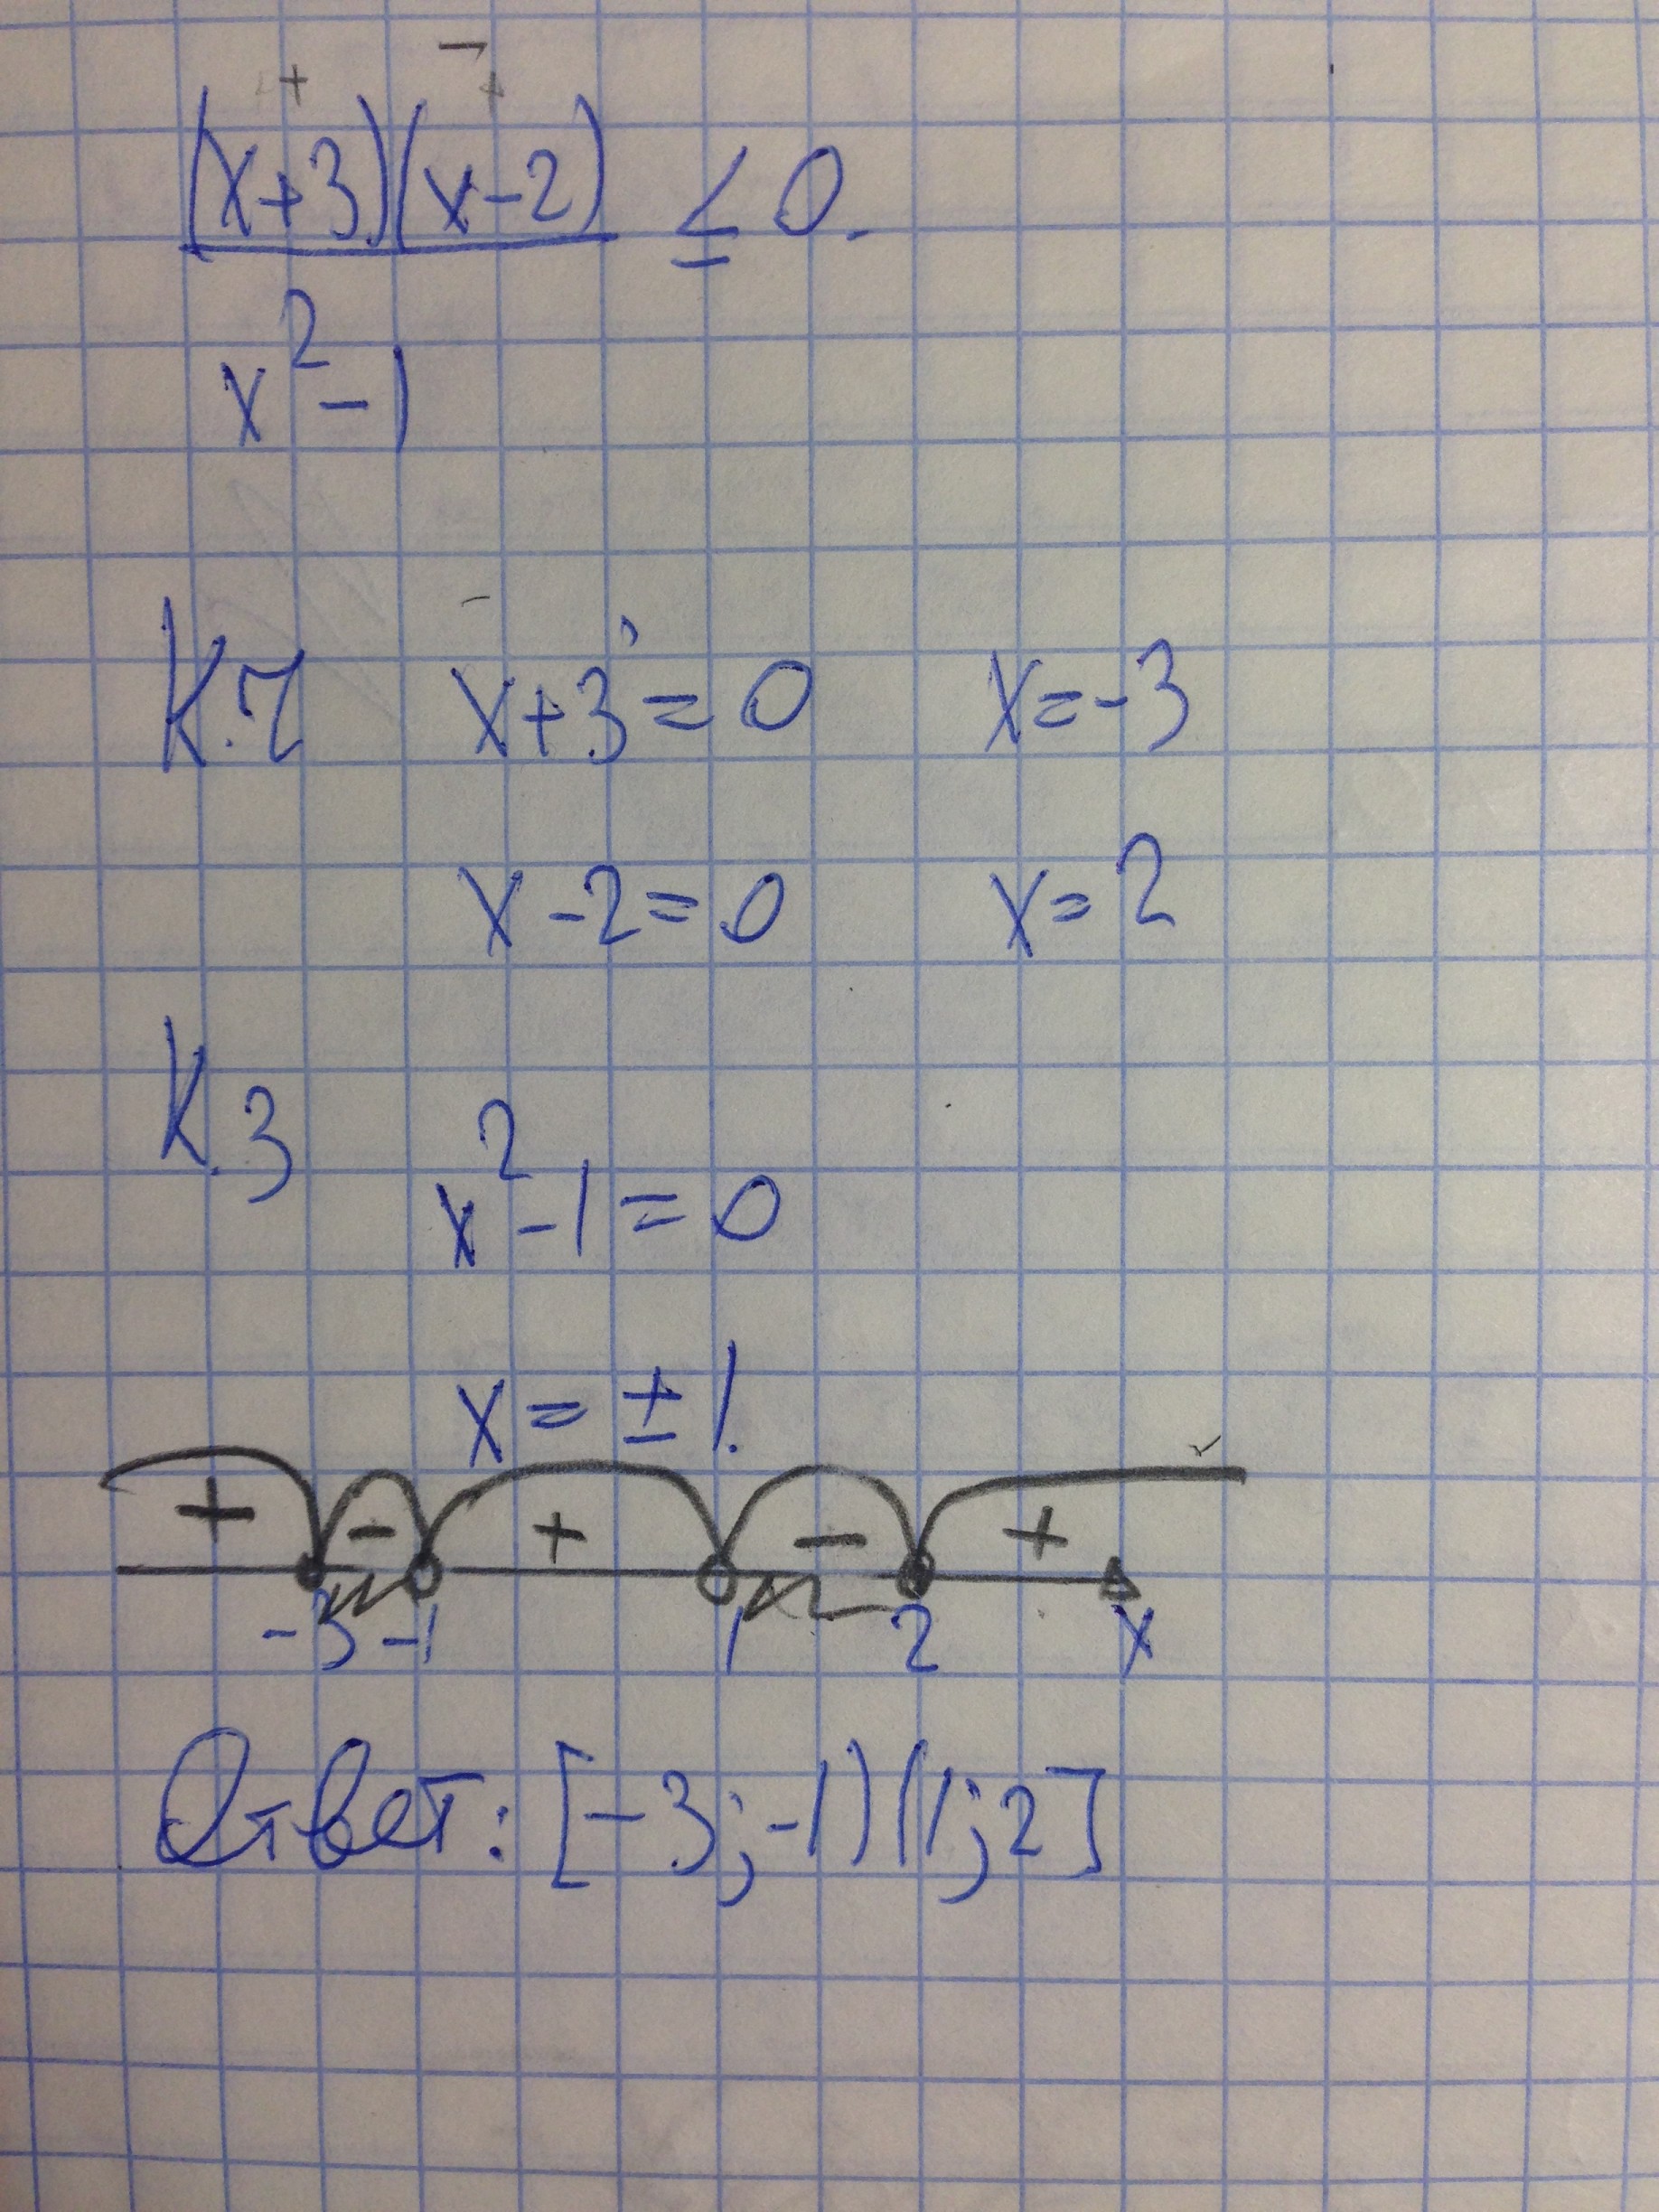 (x+3)(x-2) ≤ 0.
x²-1
К.Ч x+3=0 x=-3
x-2=0 x=2
К.З x²-1=0
x=±1.
+ - + - +
-3 -1 1 2 x
Ответ: [-3;-1)(1;2]